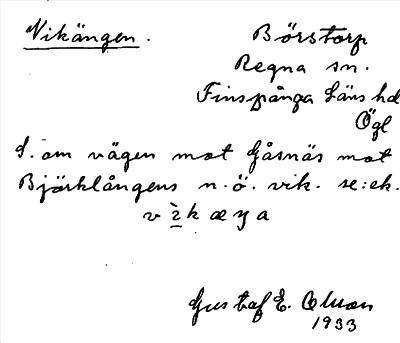 Vikängen.
Börstorp
Regna sn.
Finspånga Läns hd
Ögl
S. om vägen mot Gåsnäs mot
Björklångens n.ö. vik. se: ek.
Gustaf E. Olsson
1933